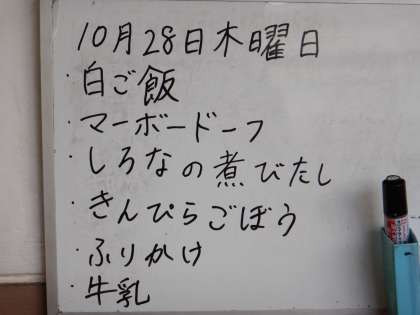 10月28日木曜日
・白ご飯
・マーボードーフ
・しろなの煮びたし
・きんぴらごぼう
・ふりかけ
・牛乳